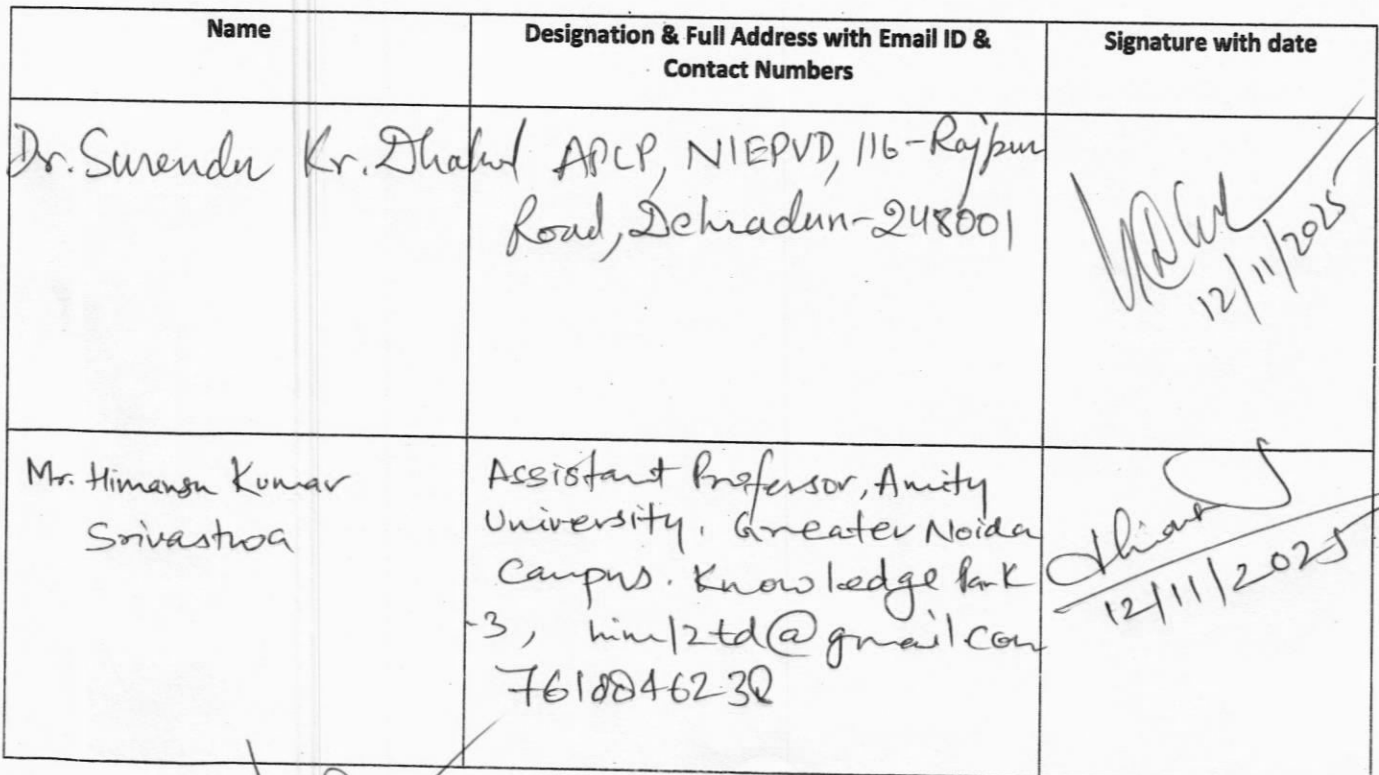 Name
Designation & Full Address with Email ID &
Contact Numbers
Signature with date
Dr. Surender Kr. APCP, NIEPVD, 116-Rajpur
Road, Dehradun-248001
12/11/2025
Mr. Himansu Kumar
Srivastva
Assistant Professor, Amity
University, Greater Noida
Campus. Knowledge Park
-3, @gmail.com
12/11/2025